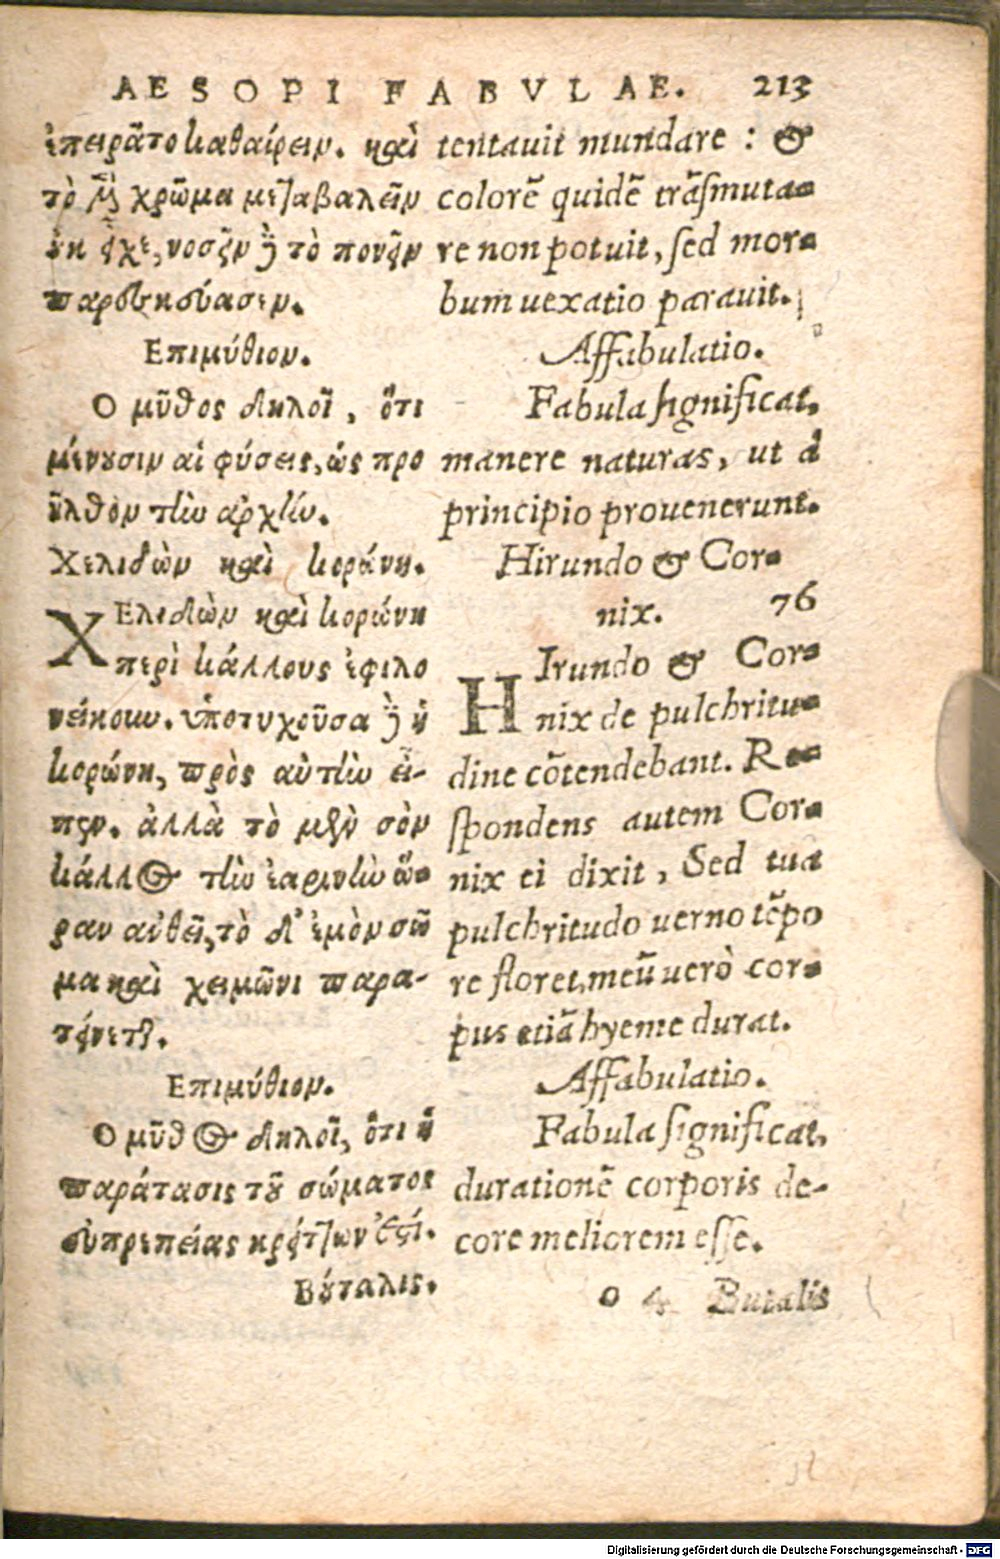 AESOPI FABVLAE. 213
ἐπειρᾶτο καθαίρειν. καὶ
τὸ μὲν χρῶμα μεταβαλεῖν
οὐκ εἶχε, νοσεῖν δὲ τὸ πονεῖν
παρεσκεύασεν.
Επιμύθιον.
Ο μῦθος δηλοῖ, ὅτι
μένουσιν αἱ φύσεις, ὡς προ
ῆλθον τὴν ἀρχήν.
Χελιδὼν καὶ κορώνη.
ΧΕλιδὼν καὶ κορώνη
περὶ κάλλους ἐφιλο
νείκουν. ὑποτυχοῦσα δὲ ἡ
κορώνη, πρὸς αὐτὴν εἶ-
πεν. ἀλλὰ τὸ μὲν σὸν
κάλλος τὴν ἐαρινὴν ὥ-
ραν ἀνθεῖ, τὸ δ' ἐμὸν σῶ
μα καὶ χειμῶνι παρα-
τείνεται.
Επιμύθιον.
Ο μῦθος δηλοῖ, ὅτι ἡ
παράτασις τοῦ σώματος
εὐπρεπείας κρείττων ἐστί.
Βούταλις.
tentauit mundare : &
colorē quidē trāsmuta-
re non potuit, sed mor-
bum uexatio parauit.
Affabulatio.
Fabula significat,
manere naturas, ut à
principio prouenerunt.
Hirundo & Cor-
nix. 76
HIrundo & Cor-
nix de pulchritu-
dine cōtendebant. Re-
spondens autem Cor-
nix ei dixit, Sed tua
pulchritudo uerno tēpo
re floret, meū uerò cor-
pus etiā hyeme durat.
Affabulatio.
Fabula significat,
durationē corporis de-
core meliorem esse.
o 4 Butalis
Digitalisierung gefördert durch die Deutsche Forschungsgemeinschaft - DFG